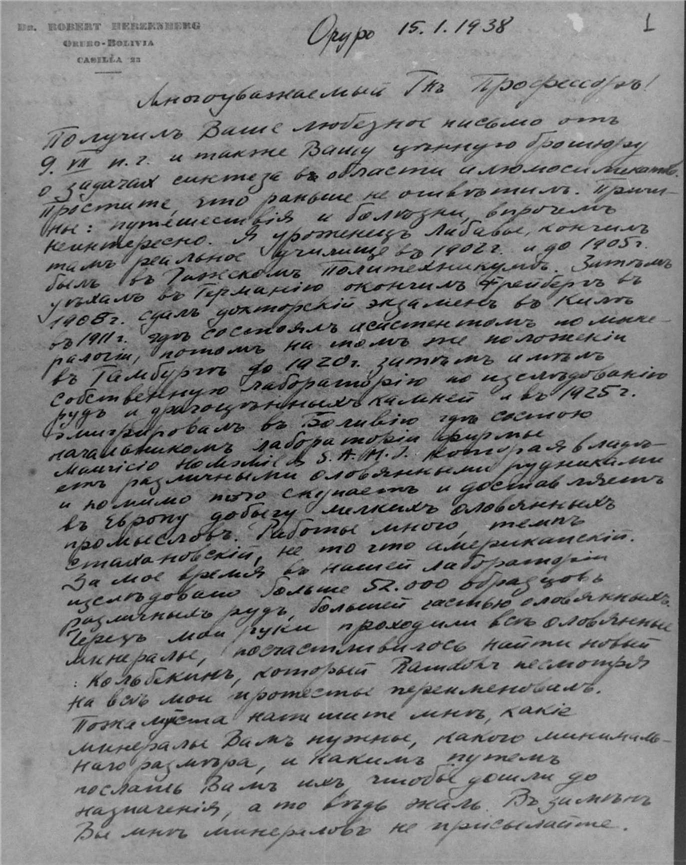 Dr. ROBERT HERZENBERG
ORURO-BOLIVIA
CASILLA 23
Оруро 15.1.1938
1
Многоуважаемый Гнъ Профессоръ!
Получилъ Ваше любезное письмо отъ
9. VII п. г. и также Вашу цѣнную брошюру
о задачах синтеза въ области
Простите, что раньше не отвѣтилъ. Причи-
ны: путешествія и болѣзни, впрочемъ
неинтересно. Я уроженецъ Либавы, кончилъ
тамъ реальное училище въ 1902г. и до 1905г.
былъ въ Рижскомъ Политехникумѣ. Затѣмъ
уѣхалъ въ Германію окончилъ Фрейбергъ въ
1908г. сдалъ докторскій экзаменъ въ Килѣ
въ 1911г. гдѣ состоялъ асистентомъ по мине-
ралогіи, потомъ на томъ же положеніи
въ Гамбургѣ до 1920г. затѣмъ имѣлъ
собственную лабораторію по изслѣдованію
рудъ и драгоцѣнныхъ камней и въ 1925г.
эмигрировалъ въ Боливію гдѣ состою
начальникомъ лабораторіи фирмы
S.A.M.I. которая владѣ-
етъ различными оловянными рудниками
и помимо того скупаетъ и доставляетъ
въ Европу добычу мелкихъ оловянныхъ
промысловъ. Работы много, темпъ
стахановскій, не то что американскій.
За мое время въ нашей лабораторіи
изслѣдовано больше 52.000 образцовъ
различныхъ рудъ, большей частью оловянныхъ.
Черезъ мои руки проходили всѣ оловянные
минералы, посчастливилось найти новый
: Кольбекинъ, который Рамдоръ несмотря
на всѣ мои протесты переименовалъ.
Пожалуйста напишите мнѣ, какіе
минералы Вамъ нужны, какого минималь-
наго размѣра, и какимъ путемъ
послать Вамъ ихъ, чтобы дошли до
назначенія, а то вѣдь жаль. Въ замѣнъ
Вы мнѣ минераловъ не присылайте.